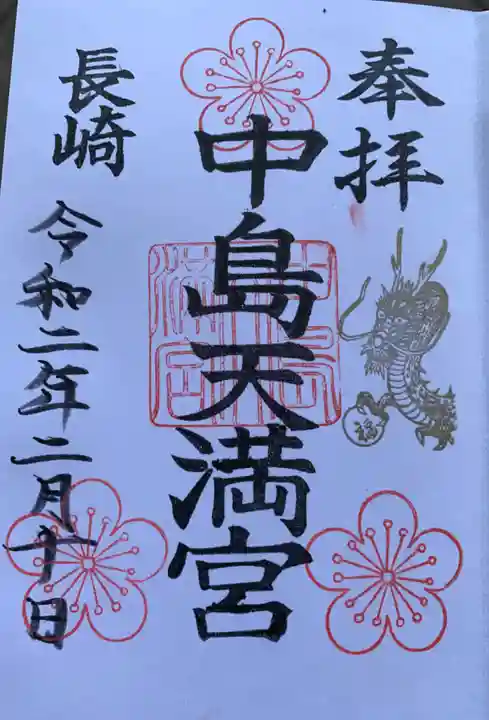 奉拝
中島天満宮
長崎
令和二年二月十日
福